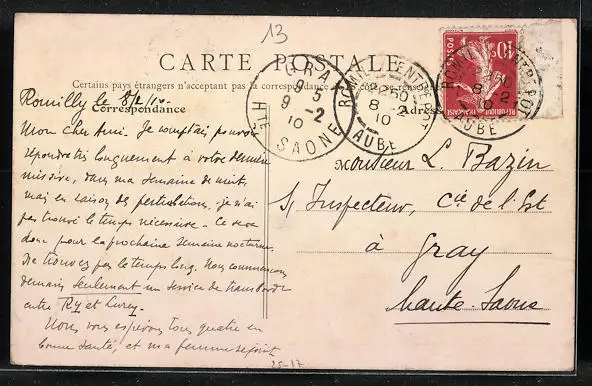 13
CARTE POSTALE
Certains pays étrangers n'acceptent pas la correspondance
Correspondance
Adresse
GRAY
9 5
9 -2
10
HTE SAONE
ROMILLY ENTREPOT
8 2
10
AUBE
POSTES
10c
Romilly le 8/2/10
Mon cher Ami. Je comptais pouvoir
répondre longuement à votre dernière
missive, dans ma semaine de nuit,
mais en raison de perturbations, je n'ai
pas trouvé le temps nécessaire. Ce sera
donc pour la prochaine semaine nocturne.
Ne trouvez pas le temps long. Nous commençons
demain seulement un service de
entre Ry et
Nous vous espérons tous quatre en
bonne santé, et ma femme se joint
25-17
Monsieur L. Bazin
S/ Inspecteur, Cie de l'Est
à Gray
Haute-Saone